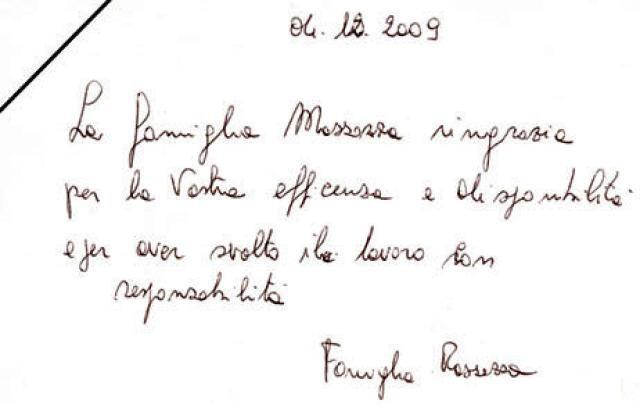 04. 12. 2009
La famiglia Massazza ringrazia
per la Vostra efficenza e disponibilità
e per aver svolto il lavoro con
responsabilità
Famiglia